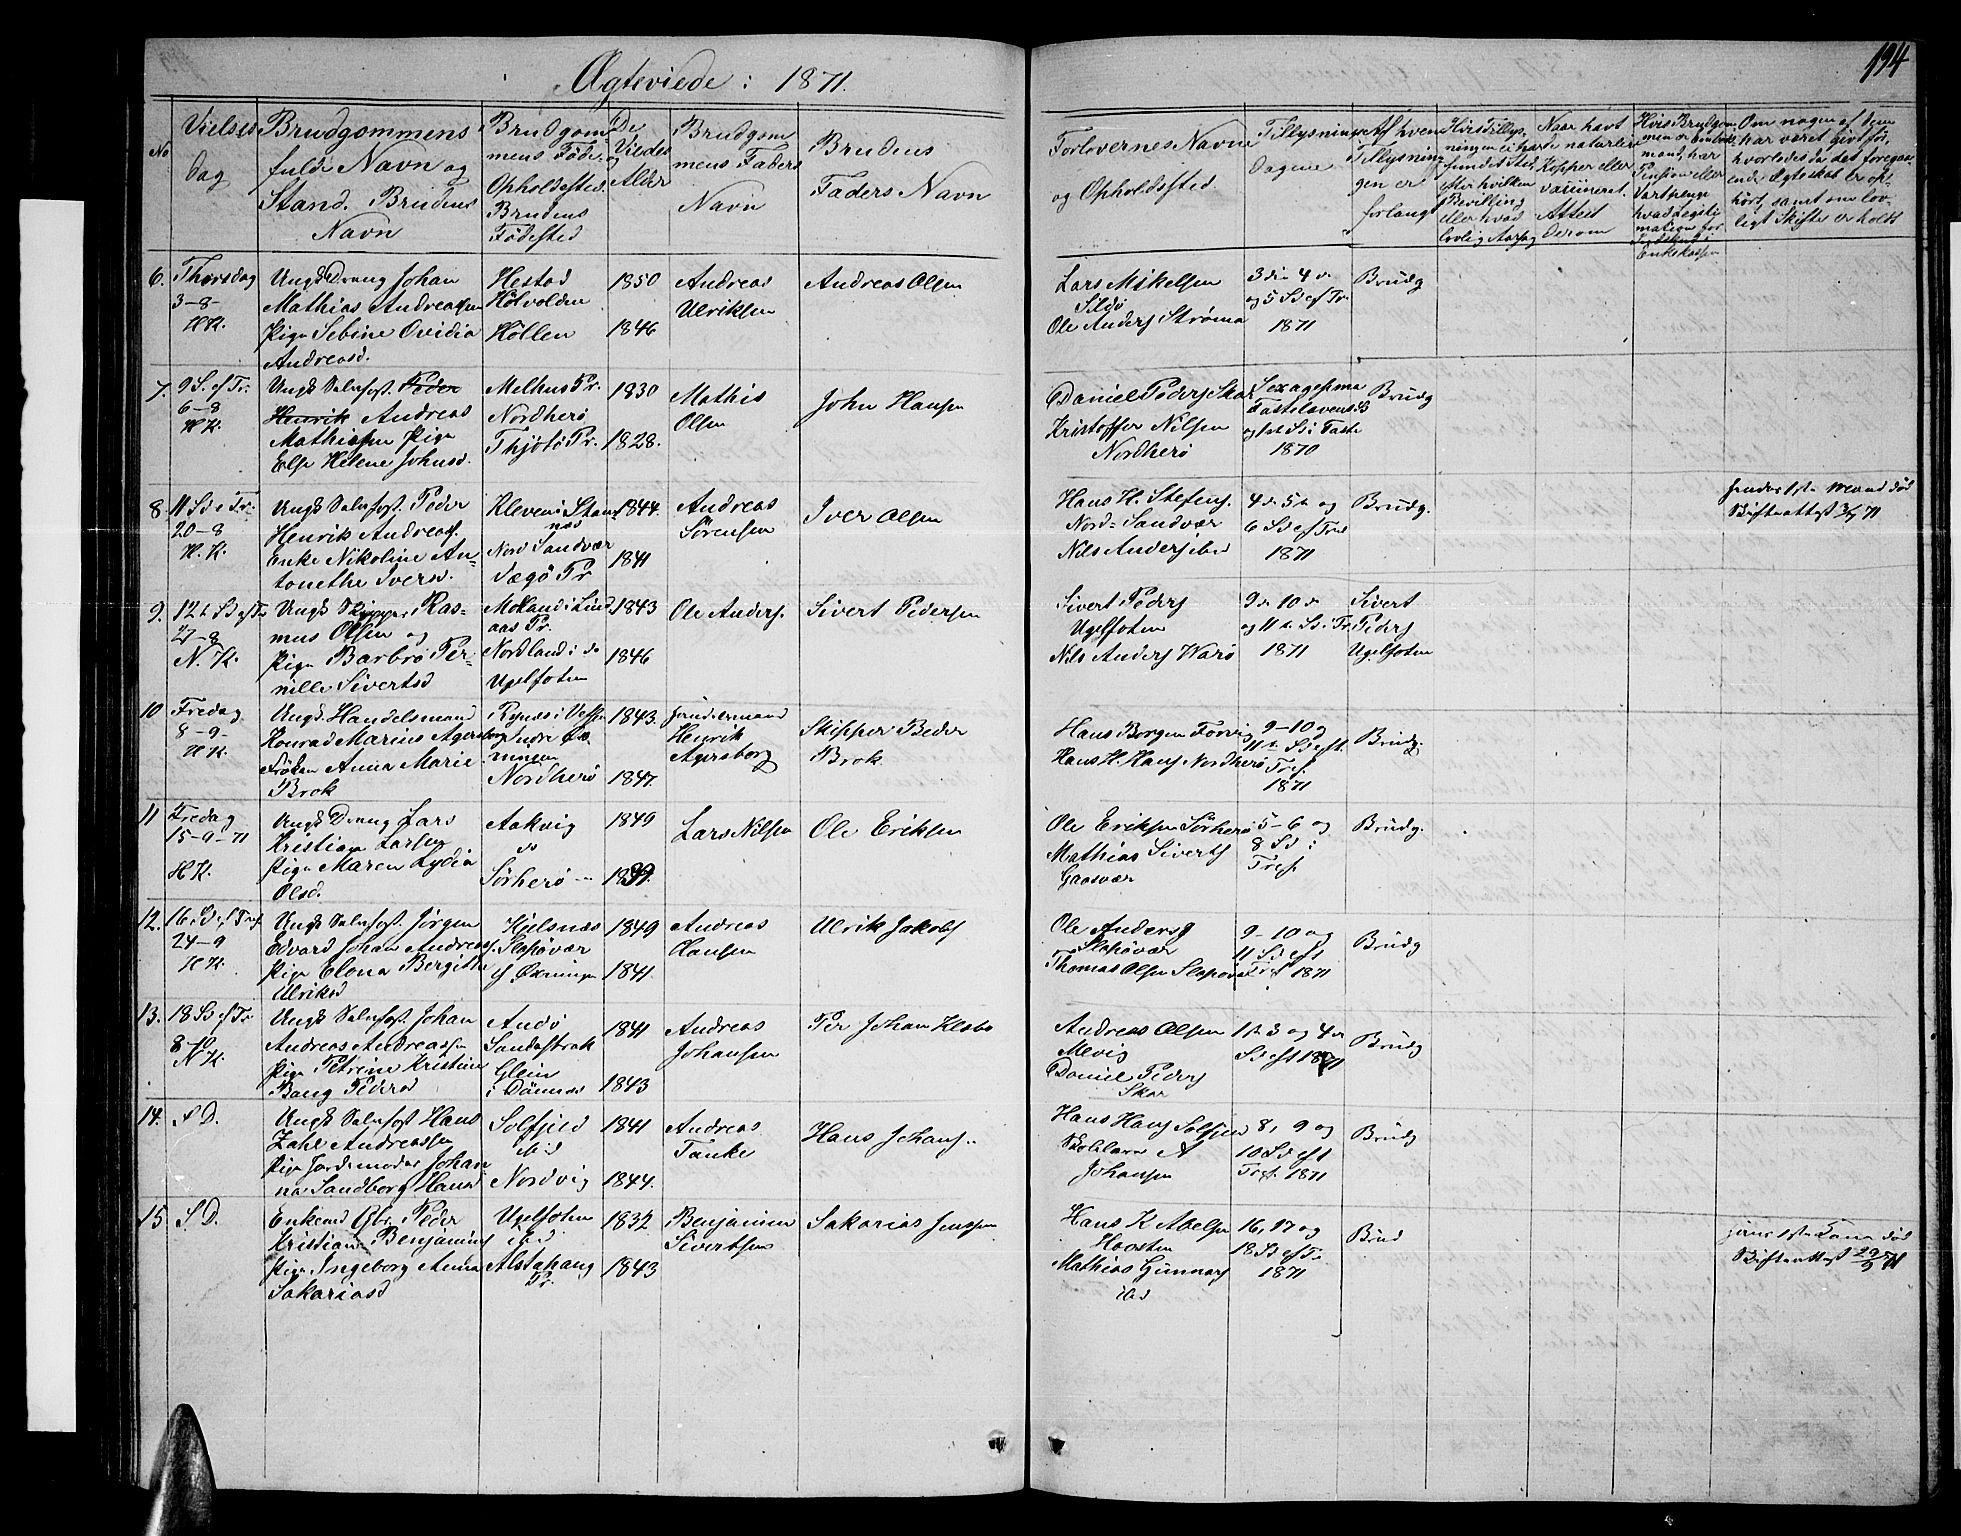 Ægteviede: 1871.
194
No
Vielses
Dag
Brudgommens
fulde Navn og
Stand. Brudens
Navn
Brudgom
mens Føde og
Opholdssted.
Brudens
Fødested
De
Viedes
Alder
Brudgom
mens Faders
Navn
Brudens
Faders Navn
Forlovernes Navne
og Opholdssted
Tillysnings
Dagene
Af hvem
Tillysnin
gen er
forlangt
Hvis Tillys-
ningen ei har
fundet Sted,
efter hvilken
Bevilling
eller hvad
lovlig Aarsag
Naar havt
de naturlige
Kopper eller
vaccineret.
Attest
derom
Hvis Brudgom
men er Embeds
mand, har
Pension eller
Vartpenge
hvad Legiti
mation for
Indskud i
Enkekassen
Om nogen af dem
har været givt før,
hvorledes da det foregaa
ende Ægteskab er op-
hørt, samt om lov-
ligt Skifte er holdt
6. Thorsdag
3-8-
H.K.
Ungk Dreng Johan
Mathias Andreassen
Pige Sebine Ovidia
Andreasd.
Hestad
Holvolden
Hollen
1850
1846
Andreas
Ulriksen
Andreas Olsen
Lars Mikelsen
Sildø
Ole Anders Strømø
3die 4de
og 5 S ef Tr.
1871
Brudg
7. 9 S. ef Tr.
6-8
H.K.
Ungk Selvfost. Peder
Henrik Andreas
Mathissen Pige
Else Helene Johnsd.
Melhus Pr.
Nordherø
Thjøtø Pr.
1830
1828.
Mathis
Olsen
John Hansen
Daniel Peders Skar
Kristoffer Nilsen
Nordherø
Sexagesima
Fastelavens S
og 1ste S i Faste
1870
Brudg
8. 11 S. i Tr.
20-8
H.K.
Ungk Selvfost. Peder
Henrik Andreass.
Enke Nikoline An-
tonethe Iversd.
Kleven i Stam-
næs
Nord Sandvær
Vegø Pr
1844.
1841
Andreas
Sørensen
Iver Olsen
Hans H. Stefens.
Nord-Sandvær
Nils Anders ibd
4de 5te og
6 S ef Tref
1871
Brudg.
hendes 1ste Mand død
Skifteattest 3/7 71
9. 12te S ef Tr
27-8
N.K.
Ungk Skipper, Ras-
mus Olsen og
Pige Barbro Per-
nille Sivertsd
Moland i Lind
aas Pr.
Nordland i do
Ugelfoten
1843
1846
Ole Anders.
Sivert Pedersen
Sivert Peders
Ugelfoten
Nils Anders Warø
9de 10de
og 11te S. i Tr.
1871
Sivert
Peders
Ugelfoten
10 Fredag
8-9-
H.K.
Ungk. Handelsmand
Konrad Marius Agersborg
Frøken Anna Marie
Brok
Rynæs i Vefsn
Indre Øx
ningen
Nordherø
1843.
1847.
Jendermand
Henrik
Agersborg
Skipper Peder
Brok
Hans Borgen Forvig
Hans H. Hans Nordherø
9-10 og
11te S eft.
Tref.
1871
Brudg.
11 Fredag
15-9-71
H.K.
Ungk Dreng Lars
Kristian Larsen
Pige Maren Lydia
Olsd.
Aakvig
do
Sørherø
1849
Lars Nilsen
Ole Eriksen
Ole Eriksen Sørherø
Mathias Siverts
Gaasvær
5-6 og
8 S i
Tref.
Brudg.
12. 16. S. ef Tref.
24-9
H.K.
Ungk Selvfost. Jørgen
Edvard Johan Andreass.
Pige Elena Bergitte
Ulriksd
Kjelsnæs
Slapøvær
f Øxningen
1849
1841.
Andreas
Hansen
Ulrik Jakobs
Ole Anders
Slapøvær
Thomas Olsen Slapøvær
9-10 og
11 S eft
Tref 1871
Brudg
13. 18 S ef Tr
8-10
N.K.
Ungk Selvfost. Johan
Andreas Andreassen
Pige Petrine Kristine
Bang Pedersd
Andø
Sandastrak
Glein
i Dønnæs
1841
1843
Andreas
Johansen
Per Johan Klæbo
Andreas Olsen
Mevig
Daniel Peders
Skar
1ste 3 og 4de
S eft 1871
Brudg
14. S D.
Ungk Selvfost Hans
Zahl Andreassen
Pige Jordemoder Johan
na Sandborg Hansd
Solfjeld
ibid
Nordvig
1841
1844.
Andreas
Tanke
Hans Johans.
Hans Hans Solfjeld
Johansen
8, 9 og
10 S eft
Tref. 1871
Brudg
15 S D.
Enkemd Gbr. Peder
Kristian Benjamins
Pige Ingeborg Anna
Sakariasd
Ugelfoten
ibid
Alstahaug
Pr.
1832
1843
Benjamin
Sivertsen
Sakarias Jenssen
Hans K Abelsen
Haasten
Mathias Gunnars
ibd
16, 17 og
18 S ef Tr
1871
Brud
hans 1ste Kone død
Skifteattest 29/9 71